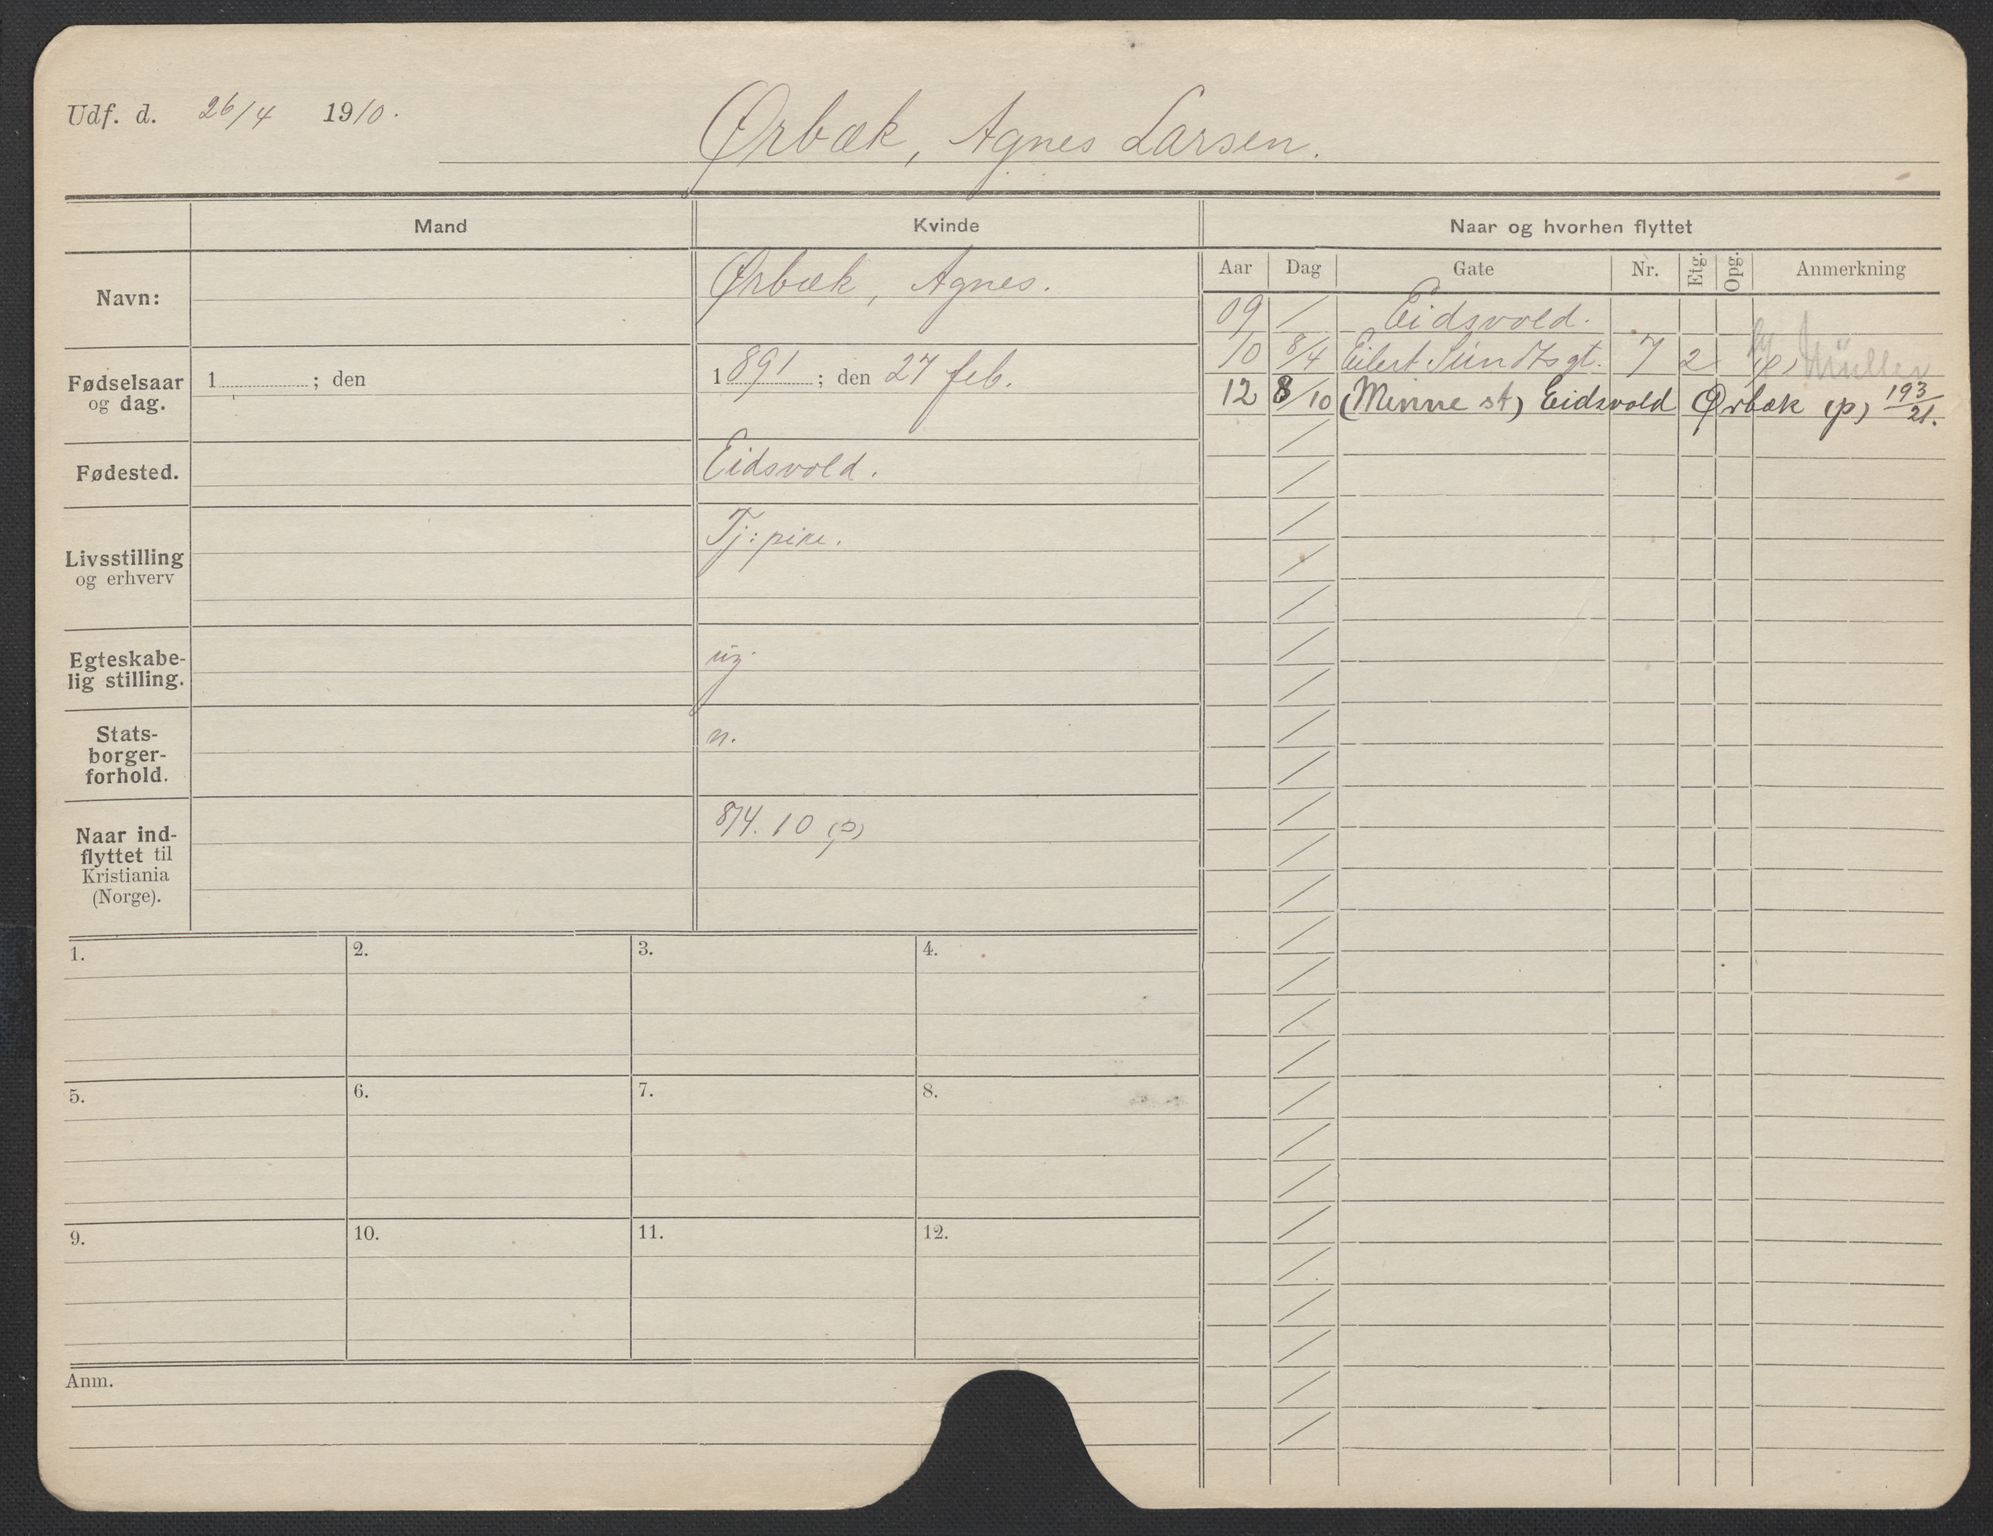 Udf. d. 26/4 1910.
Ørbæk, Agnes Larsen.
Mand
Kvinde
Naar og hvorhen flyttet
Aar Dag Gate Nr. Etg. Opg. Anmerkning
Navn:
Ørbæk, Agnes.
Fødselsaar
og dag.
1 ; den
1891 ; den 27 feb.
Fødested.
Eidsvold.
Livsstilling
og erhverv
Tj: pike.
Egteskabe-
lig stilling.
ug.
Stats-
borger-
forhold.
n.
Naar ind-
flyttet til
Kristiania
(Norge).
8/4. 10 (p)
09 / Eidsvold.
10 8/4 Eilert Sundtsgt. 7 2 (p) Müller
12 8/10 (Minne st) Eidsvold Ørbæk (p) 193/21.
1.
2.
3.
4.
5.
6.
7.
8.
9.
10.
11.
12.
Anm.